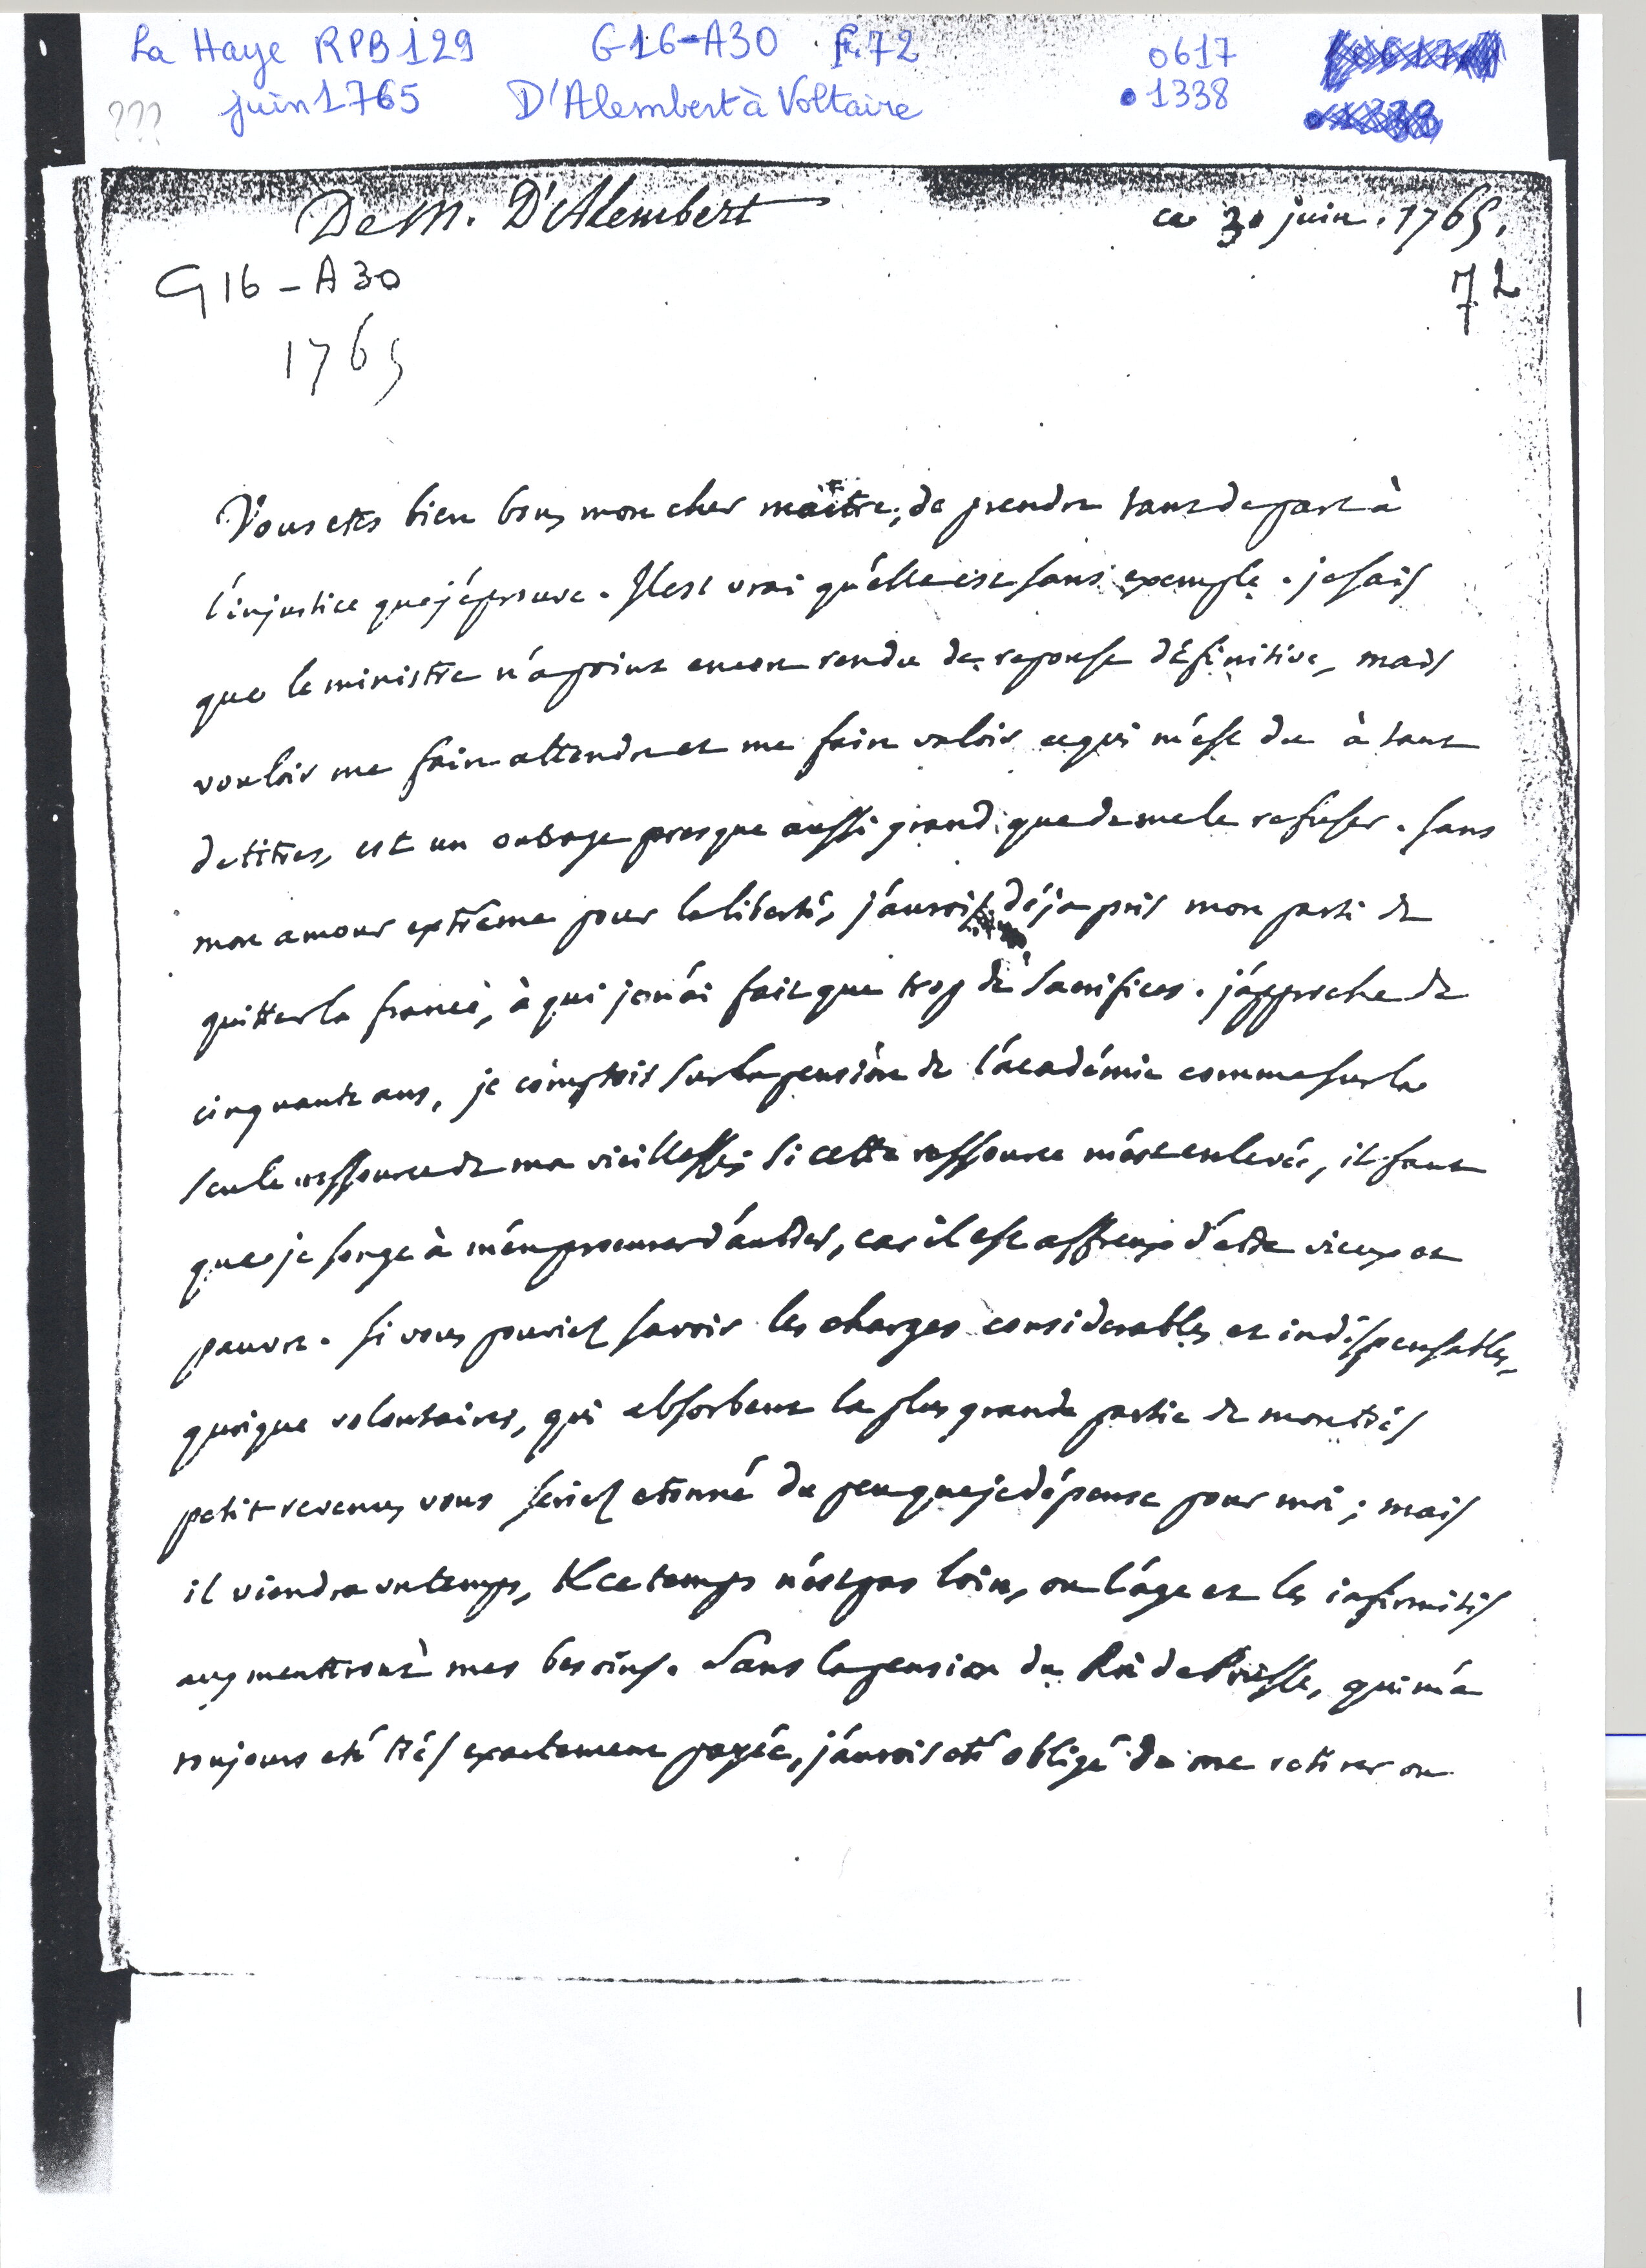 La Haye RPB 129 G16-A30 F.72 0617
??? juin 1765 D'Alembert à Voltaire •1338
De M. D'Alembert ce 30 juin. 1765.
G16-A30 72
1765
Vous etes bien bon, mon cher maître, de prendre tant de part à
l'injustice que j'éprouve. Il est vrai qu'elle est sans exemple. je sais
que le ministre n'a point encore rendu de reponse définitive, mais
vouloir me faire attendre et me faire valoir ce qui m'est du à tant
de titres, est un outrage presque aussi grand que de me le refuser. sans
mon amour extrême pour la liberté, j'aurois déja pris mon parti de
quitter la france, à qui je n'ai fait que trop de sacrifices. j'approche de
cinquante ans, je comptois sur la pension de l'académie comme sur la
seule ressource de ma vieillesse; si cette ressource m'est enlevée, il faut
que je songe à m'en procurer d'autres, car il est affreux d'etre vieux et
pauvre. si vous pouviez savoir les charges considerables et indispensables,
quoique volontaires, qui absorbent la plus grande partie de mon très
petit revenu, vous seriez etonné du peu que je dépense pour moi; mais
il viendra un temps, et ce temps n'est pas loin, ou l'age et les infirmités
augmenteront mes besoins. Sans la pension du Roi de Prusse, qui m'a
toujours eté très exactement payée, j'aurois eté obligé de me retirer ou